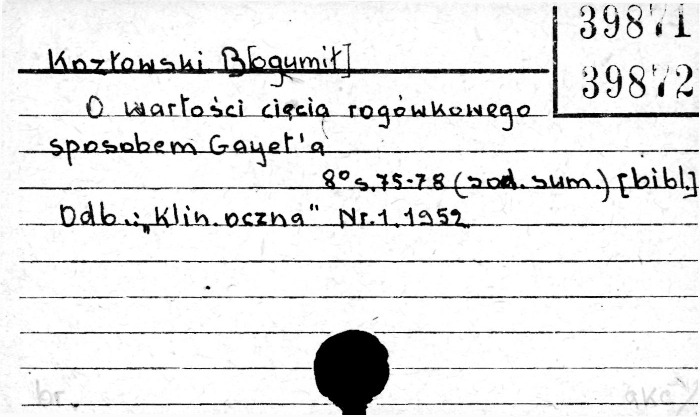 39871
39872
Kozłowski B[ogumił]
O wartości cięcia rogówkowego
sposobem Gayet'a
8° s.75-78 (sod. sum.) [bibl.]
Odb.: „Klin. oczna" Nr.1.1952
br.